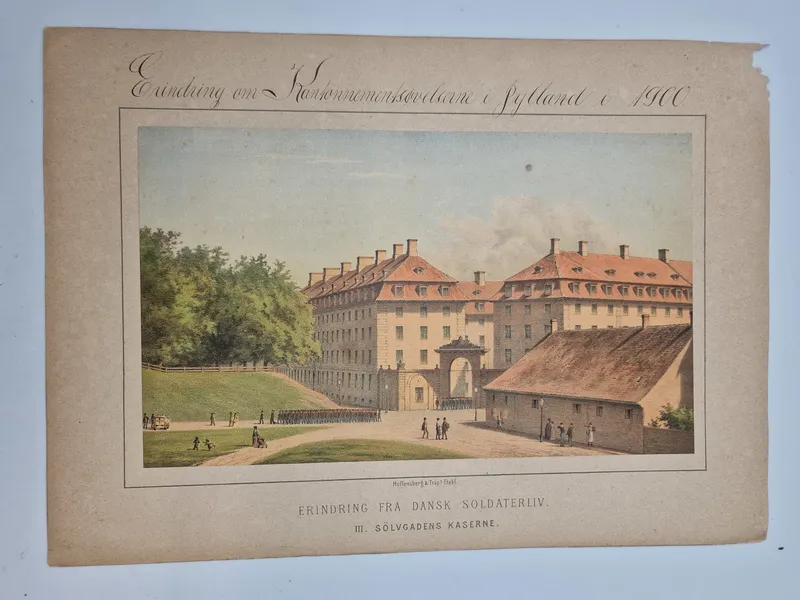 Erindring om Kantonnementsøvelserne i Jylland i 1900
Hoffensberg & Trap's Etabl.
ERINDRING FRA DANSK SOLDATERLIV.
III. SÖLVGADENS KASERNE.